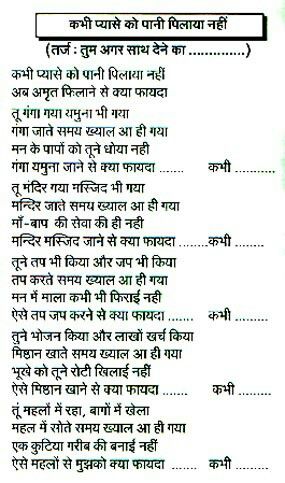 कभी प्यासे को पानी पिलाया नहीं
(तर्ज : तुम अगर साथ देने का ..............)
कभी प्यासे को पानी पिलाया नहीं
अब अमृत फिलाने से क्या फायदा
तू गंगा गया यमुना भी गया
गंगा जाते समय ख्याल आ ही गया
मन के पापों को तूने धोया नही
गंगा यमुना जाने से क्या फायदा ....... कभी ...........
तू मंदिर गया मस्जिद भी गया
मन्दिर जाते समय ख्याल आ ही गया
माँ-बाप की सेवा की ही नही
मन्दिर मस्जिद जाने से क्या फायदा .......कभी ........
तूने तप भी किया और जप भी किया
तप करते समय ख्याल आ ही गया
मन में माला कभी भी फिराई नही
ऐसे तप जप करने से क्या फायदा ....... कभी .........
तुने भोजन किया और लाखों खर्च किया
मिष्ठान खाते समय ख्याल आ ही गया
भूखे को तूने रोटी खिलाई नहीं
ऐसे मिष्ठान खाने से क्या फायदा ....... कभी .........
तूं महलों में रहा, बागों में खेला
महल में सोते समय ख्याल आ ही गया
एक कुटिया गरीब की बनाई नहीं
ऐसे महलों से मुझको क्या फायदा ....... कभी .........